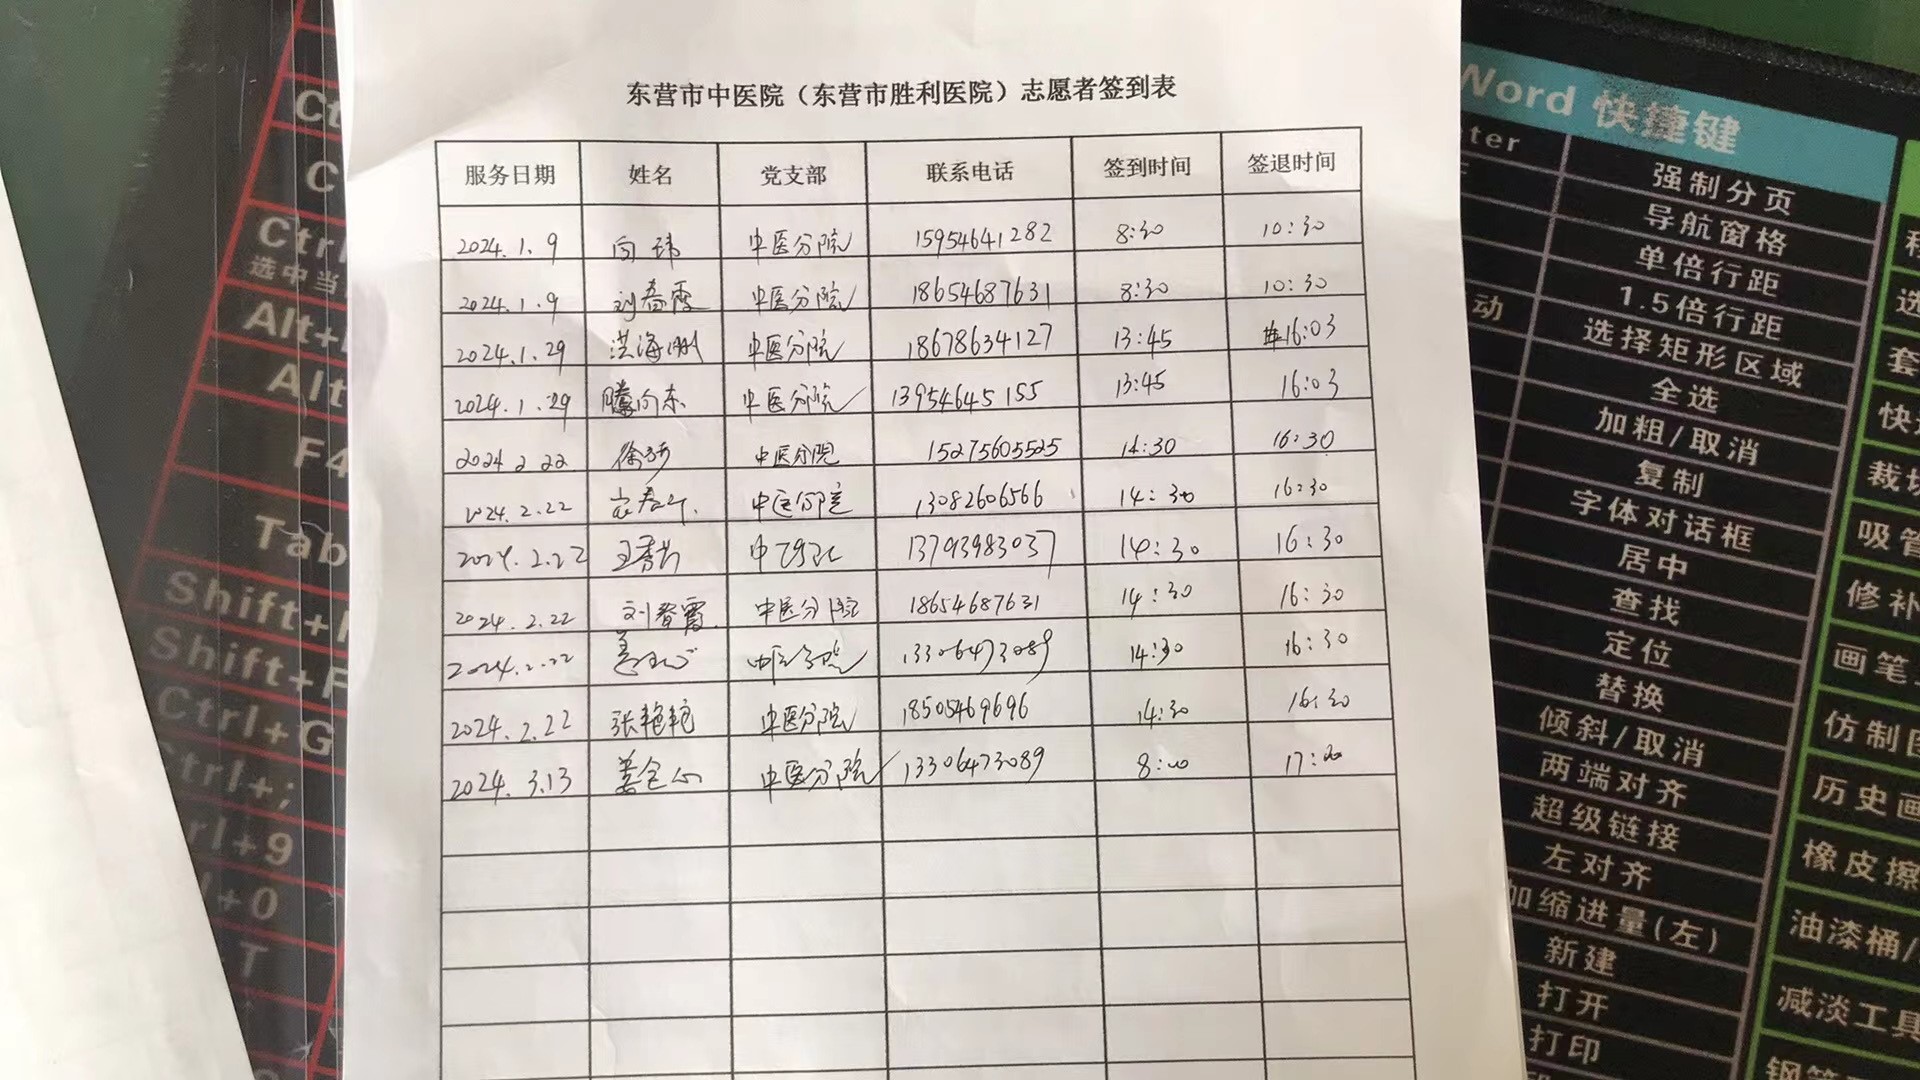 东营市中医院（东营市胜利医院）志愿者签到表
服务日期 姓名 党支部 联系电话 签到时间 签退时间
2024.1.9 向玮 中医分院 15954641282 8:30 10:30
2024.1.9 刘春霞 中医分院 18654687631 8:30 10:30
2024.1.29 洪海 中医分院 18678634127 13:45 16:03
2024.1.29 滕向东 中医分院 13954645155 13:45 16:03
2024.2.22 徐 中医分院 15275605525 14:30 16:30
2024.2.22 中医分院 13082606566 14:30 16:30
2024.2.22 王 中 13793983037 14:30 16:30
2024.2.22 刘春霞 中医分院 18654687631 14:30 16:30
2024.2.22 姜 中医分院 13306473089 14:30 16:30
2024.2.22 张艳艳 中医分院 18505469696 14:30 16:30
2024.3.13 姜 中医分院 13306473089 8:00 17:00
Ct
C
Ctrl
选中当
Alt+
Alt
F4
Tab
Shift+
Shift+F
Ctrl+G
Ctrl+;
rl+9
+0
T
Word 快捷键
ter 强制分页
导航窗格
单倍行距
动 1.5倍行距
选择矩形区域
全选
加粗/取消
复制
字体对话框
居中
查找
定位
替换
倾斜/取消
两端对齐
超级链接
左对齐
加缩进量(左)
新建
打开
打印
选
套
快
裁切
吸管
修补
画笔
仿制图
历史画
橡皮擦
油漆桶/
减淡工具
钢笔